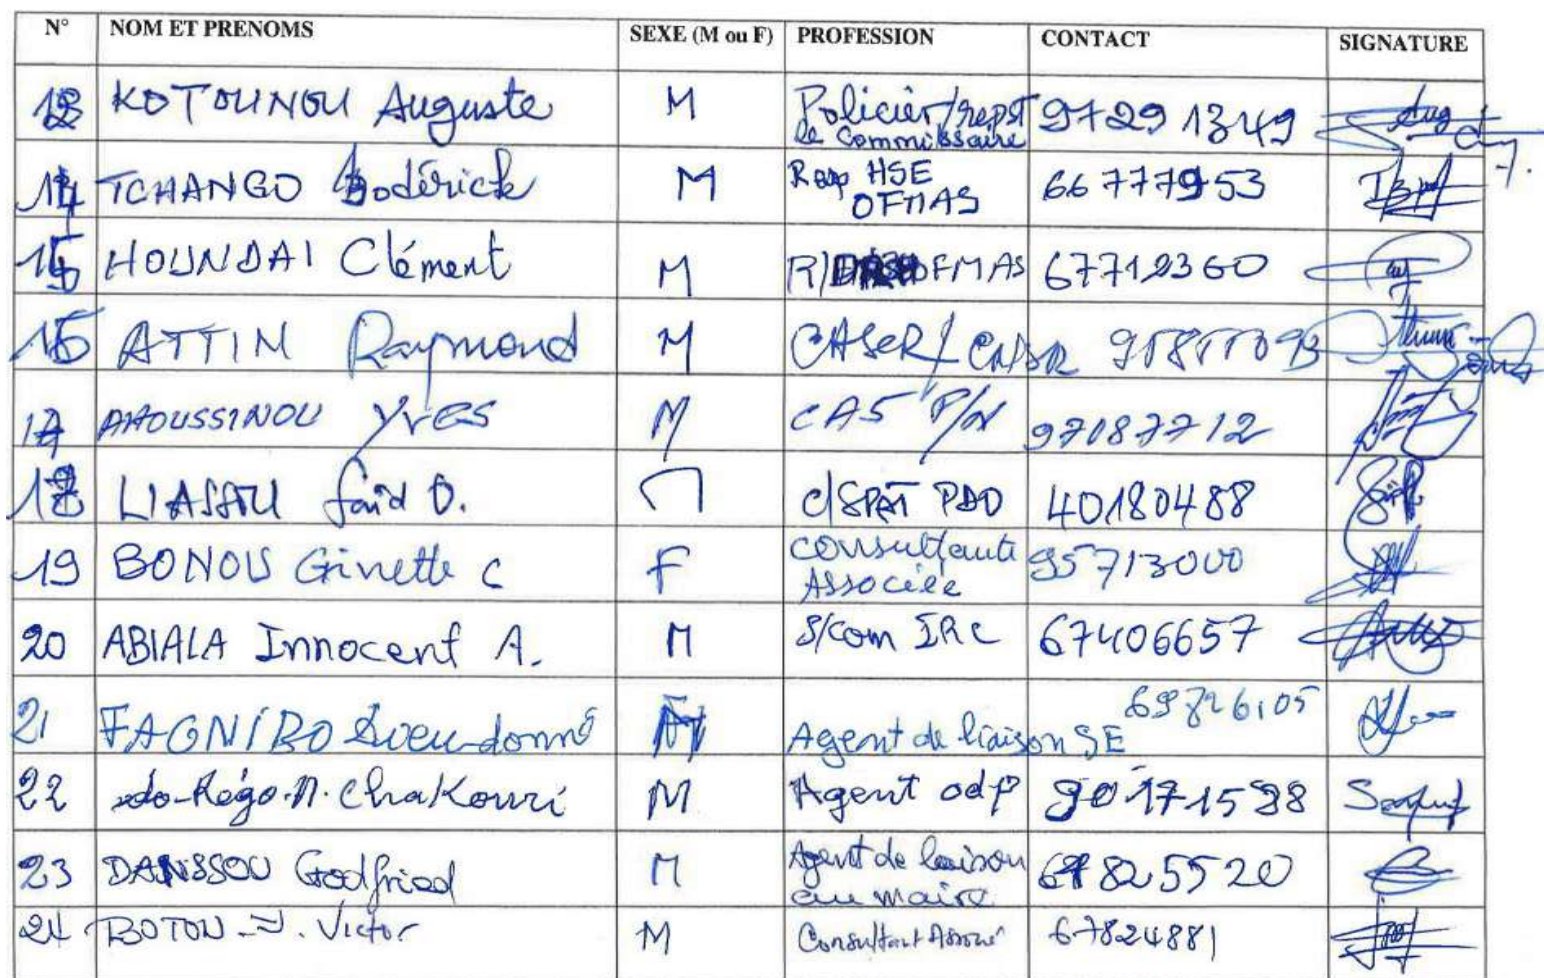 N° NOM ET PRENOMS SEXE (M ou F) PROFESSION CONTACT SIGNATURE
13 KOTOUNOU Auguste M Policier/repst 97291349
le Commissaire
14 TCHANGO Rodérick M Resp HSE 66777953
OFMAS
15 HOUNDAI Clément M OFMAS 67719360
16 ATTIN Raymond M CASER/
17 AHOUSSINOU Yves M CAS P/N 97087712
18 LIASSOU Said O. M C/SPAT PDO 40180488
19 BONOU Ginette C F consultante 95713000
Associée
20 ABIALA Innocent A. M S/Com IRC 67406657
21 FAGNIBO Dieu-donné M Agent de liaison SE 69826105
22 do-Régo N. Chakouri M Agent odp 90171598
23 DANSSOU Godfried M Agent de liaison 67825520
au maire
24 BOTON J. Victor M Consultant Associé 67824881